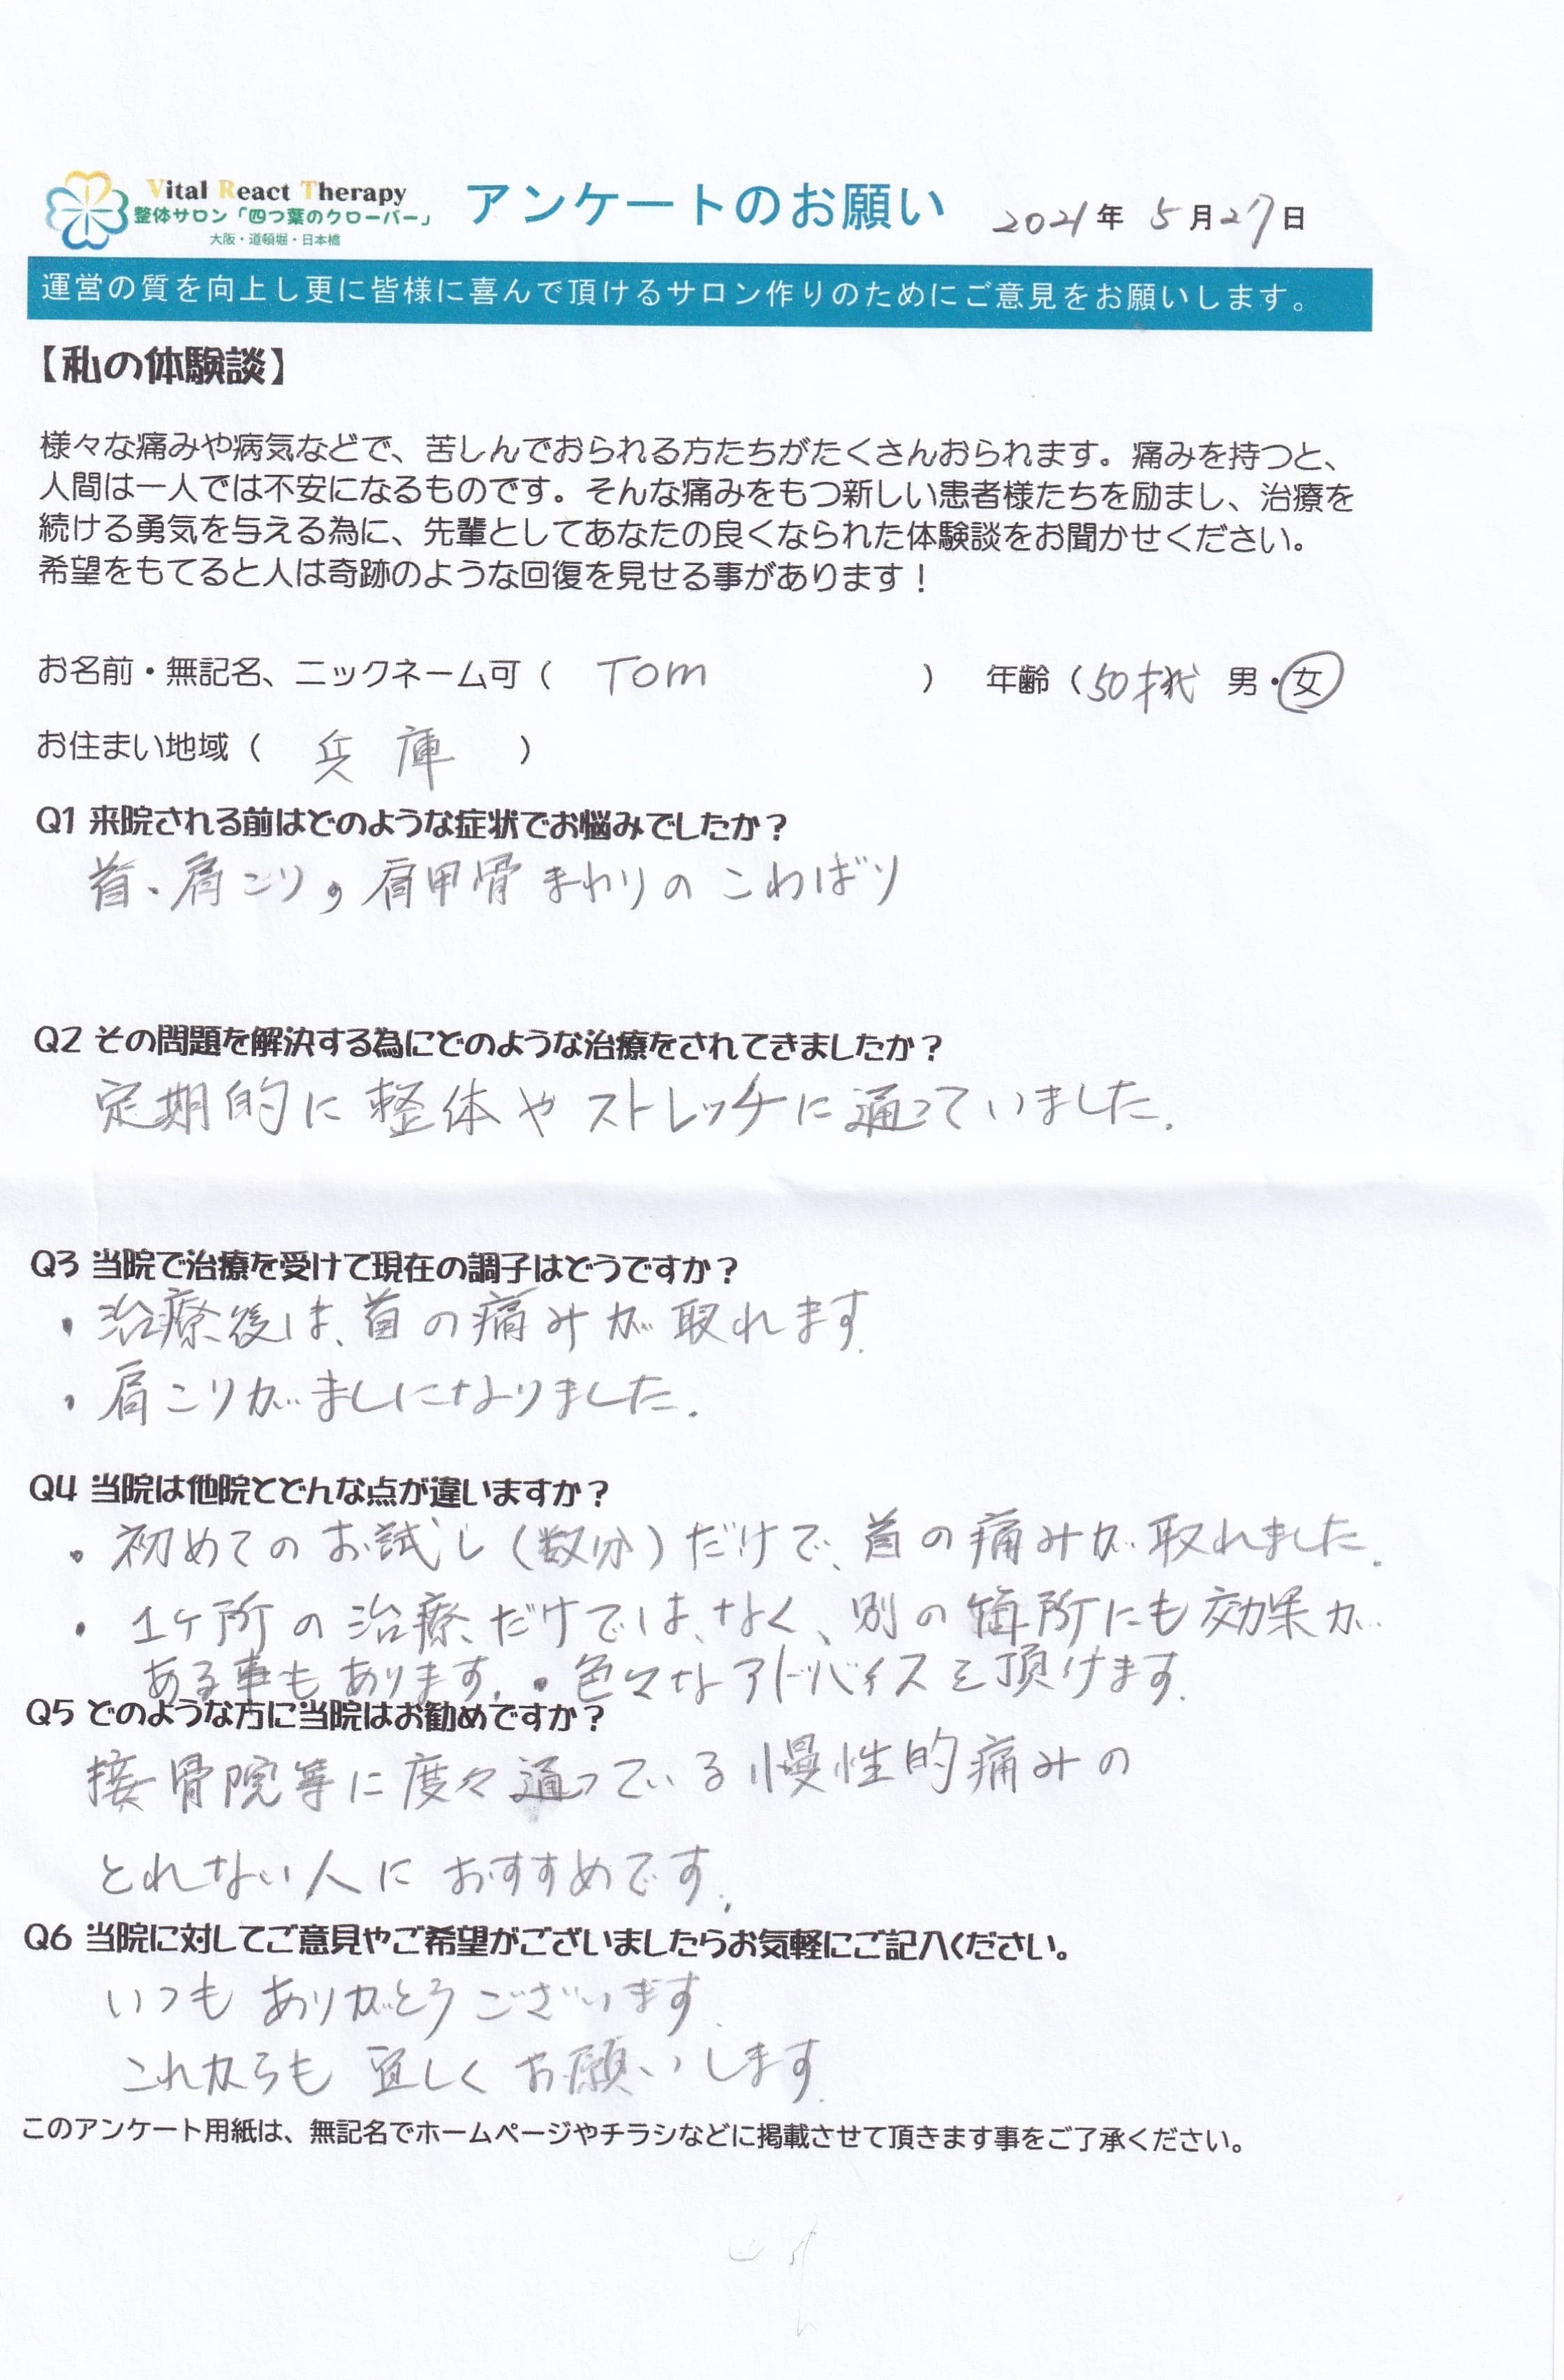 Vital React Therapy
整体サロン「四つ葉のクローバー」
大阪・道頓堀・日本橋
アンケートのお願い 2021年 5月27日
運営の質を向上し更に皆様に喜んで頂けるサロン作りのためにご意見をお願いします。
【私の体験談】
様々な痛みや病気などで、苦しんでおられる方たちがたくさんおられます。痛みを持つと、
人間は一人では不安になるものです。そんな痛みをもつ新しい患者様たちを励まし、治療を
続ける勇気を与える為に、先輩としてあなたの良くなられた体験談をお聞かせください。
希望をもてると人は奇跡のような回復を見せる事があります！
お名前・無記名、ニックネーム可（ Tom ） 年齢（50才代 男・女
お住まい地域（ 兵庫 ）
Q1 来院される前はどのような症状でお悩みでしたか？
首、肩こり，肩甲骨まわりのこわばり
Q2 その問題を解決する為にどのような治療をされてきましたか？
定期的に整体やストレッチに通っていました.
Q3 当院で治療を受けて現在の調子はどうですか？
・治療後は、首の痛みが取れます.
・肩こりがましになりました.
Q4 当院は他院とどんな点が違いますか？
・初めてのお試し（数分）だけで、首の痛みが取れました.
・1ヶ所の治療だけでは、なく、別の箇所にも効果が
ある事もあります.・色々なアドバイスを頂けます.
Q5 どのような方に当院はお勧めですか？
接骨院等に度々通っている慢性的痛みの
とれない人におすすめです.
Q6 当院に対してご意見やご希望がございましたらお気軽にご記入ください。
いつもありがとうございます.
これからも宜しくお願いします.
このアンケート用紙は、無記名でホームページやチラシなどに掲載させて頂きます事をご了承ください。